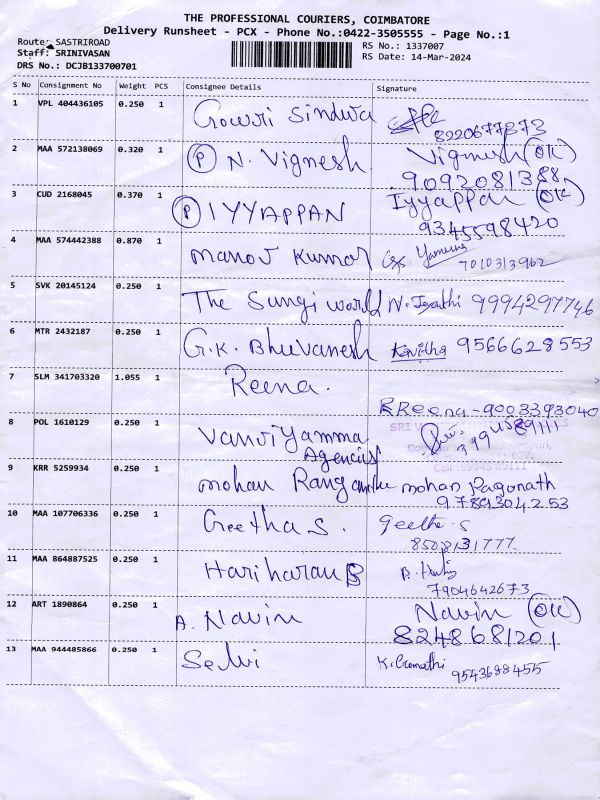 THE PROFESSIONAL COURIERS, COIMBATORE
Delivery Runsheet - PCX - Phone No.:0422-3505555 - Page No.:1
Route: SASTRIROAD
Staff: SRINIVASAN
DRS No.: DCJB133700701
RS No.: 1337007
RS Date: 14-Mar-2024
S No Consignment No Weight PCS Consignee Details Signature
1 VPL 404436105 0.250 1 Gowri Sindura
8220677373
2 MAA 572138069 0.320 1 (P) N. Vignesh Vignesh (OK)
9092081388
3 CUD 2168045 0.370 1 (P) IYYAPPAN Iyyappan (OK)
9345598420
4 MAA 574442388 0.870 1 Manoj Kumar Yamuna
7010313962
5 SVK 20145124 0.250 1 The Sungi world N. Jayathi 9994297746
6 MTR 2432187 0.250 1 G.K. Bhuvanesh Kavitha 9566628553
7 SLM 341703320 1.055 1 Reena.
R Reena - 9003393040
8 POL 1610129 0.250 1 Vanriyamma
Agencies
Cell :99943 89111
9 KRR 5259934 0.250 1 mohan Ranganathe mohan Ragonath
9789304253
10 MAA 107706336 0.250 1 Geetha S. Geetha. S
8508131777.
11 MAA 864887525 0.250 1 Hariharan B
7904642673
12 ART 1890864 0.250 1 A. Navin Navin (OK)
8248681201
13 MAA 944485866 0.250 1 Selvi K. Gomathi
9543688455